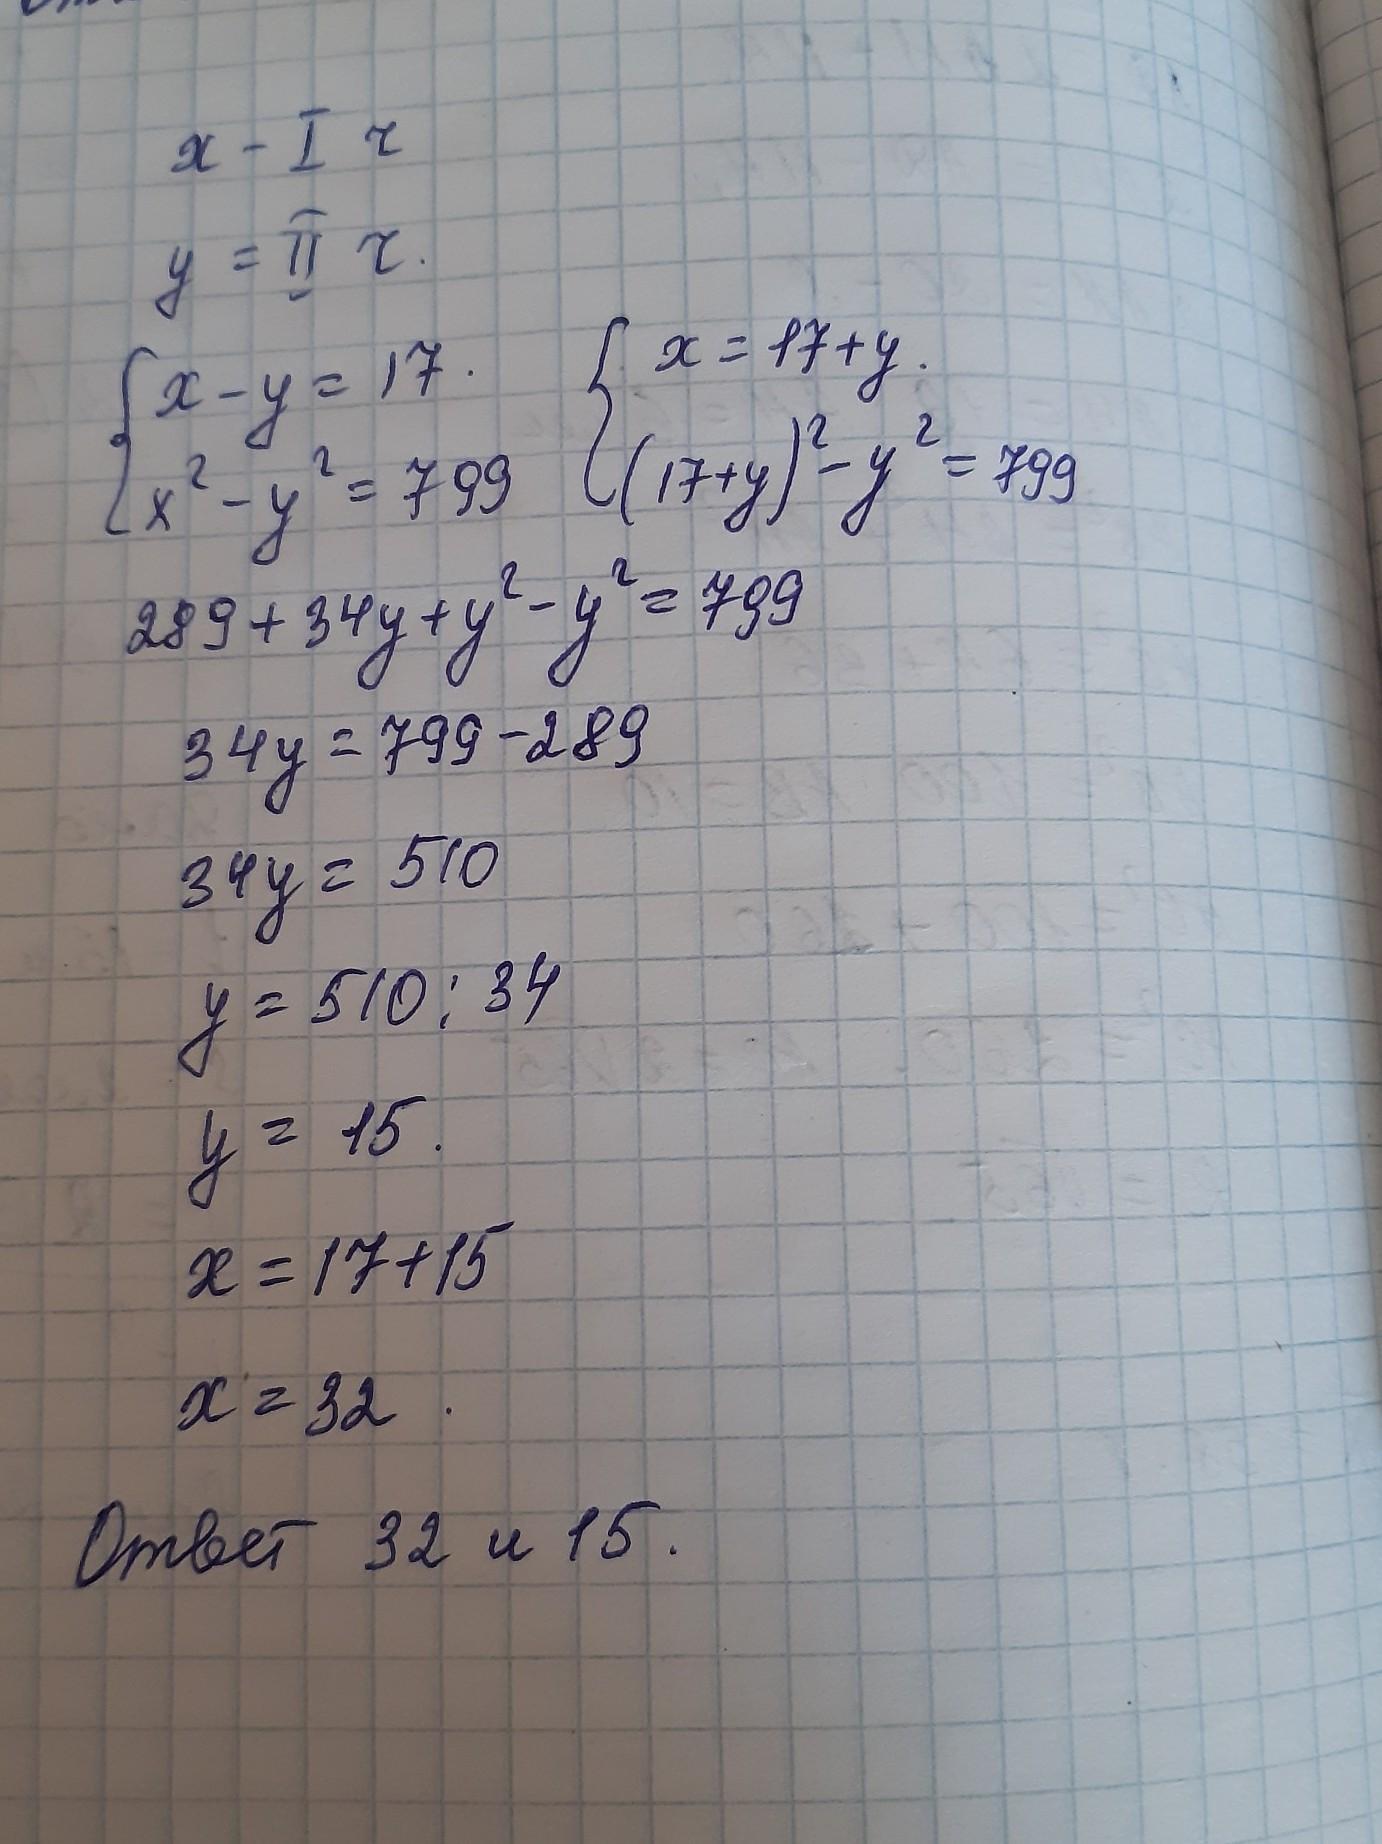 x - I ч
y = II ч.
{ x - y = 17. { x = 17 + y.
x² - y² = 799 (17+y)² - y² = 799
289 + 34y + y² - y² = 799
34y = 799 - 289
34y = 510
y = 510 : 34
y = 15.
x = 17 + 15
x = 32.
Ответ 32 и 15.